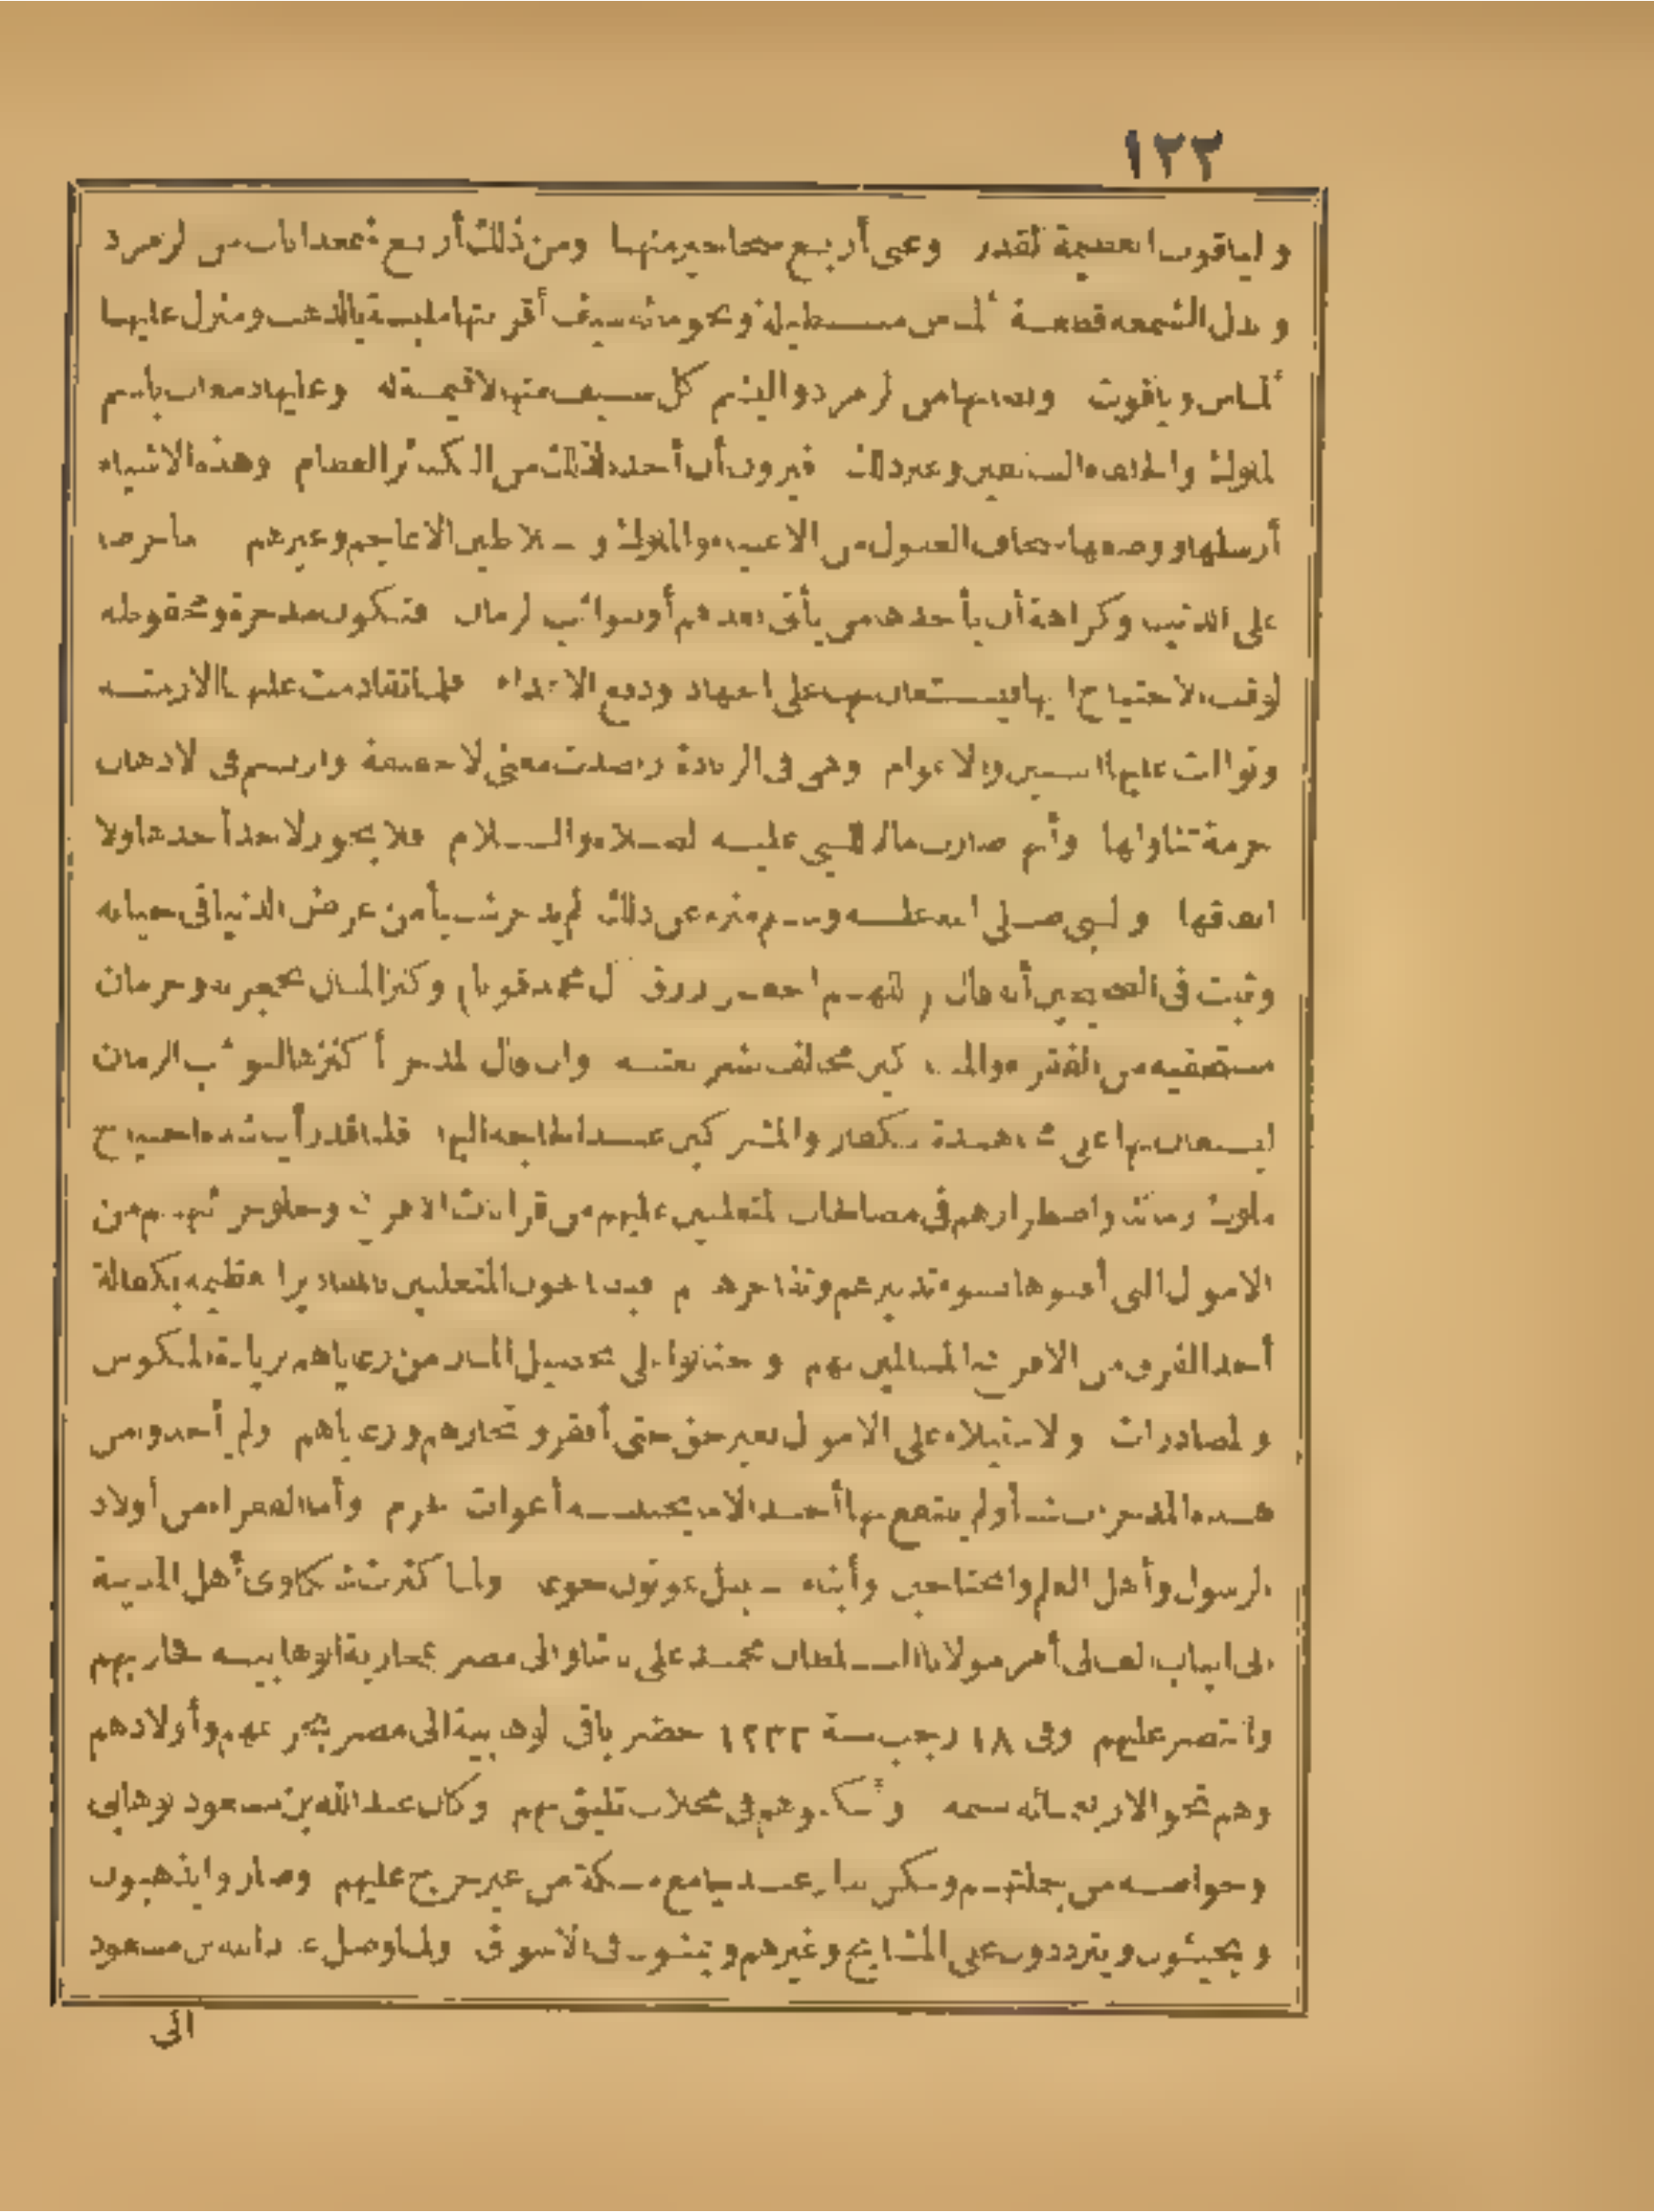 ١٢٢
والياقوت العظيمة القدر وهى أربع سحاحير منها ومن ذلك أربع شمعدانات من الزمرد
وبدل الشمعة قطعة ألماس مستطيلة ونحو مائة سيف أقربتها ملبسة بالذهب ومنزل عليها
ألماس وياقوت ونصابها من الزمرد واليشم كل سيف منها لاقيمة له وعليها دمغات باسم
الملوك والخلفاء السالفين وغير ذلك فيرون أن أخذ ذلك من الكبائر العظام وهذه الاشياء
أرسلها ووضعها خساف العقول من الاغنياء والملوك وسلاطين الاعاجم وغيرهم اما حرصا
على الدنيا وكراهة أن يأخذها من يأتى بعدهم أو لنوائب الزمان فتكون مدخرة ومحفوظة
لوقت الاحتياج اليها فيستعان بها على الجهاد ودفع الاعداء فلما تقادمت عليها الازمنة
وتوالت عليها السنين والاعوام وهى فى الزيادة ارتصدت معنى لا حقيقة وارتسم فى الاذهان
حرمة تناولها وأنها صارت مالا للنبى عليه الصلاة والسلام فلا يجوز لاحد أخذها ولا
انفاقها والنبى صلى الله عليه وسلم منزه عن ذلك لم يدخر شيأ من عرض الدنيا فى حياته
وثبت فى الصحيحين أنه قال اللهم اجعل رزق آل محمد قوتا وكنز المال بحجرته وحرمان
مستحقيه من الفقراء والمساكين مخالف لشريعته وان قال المدخر أكنزها لنوائب الزمان
ليستعان بها على مجاهدة الكفار والمشركين عند الحاجة اليها قلنا قد رأينا شدة احتياج
ملوك زماننا واضطرارهم فى مصالحات المتغلبين عليهم من قرانات الافرنج وخلو خزائنهم من
الاموال التى أفنوها بسوء تدبيرهم وتفاخرهم فيصالحون المتغلبين بالمقادير العظيمة بكفالة
أحد الفرق من الافرنج المسالمين لهم واحتالوا على تحصيل المال من رعاياهم بزيادة المكوس
والمصادرات والاستيلاء على الاموال بغير حق حتى أفقروا تجارهم ورعاياهم ولم أخذوا من
هذه المدخرات شيأ ولم ينتفع بها أحد الا ما يختلسه أغوات الحرم وأما الفقراء من أولاد
الرسول وأهل العلم والمحتاجين وأبناء السبيل يموتون جوعا ولما كثرت شكاوى أهل المدينة
الى الباب العالى أمر مولانا السلطان محمد على باشا والى مصر بمحاربة الوهابية فحاربهم
وانتصر عليهم وفى ١٨ رجب سنة ١٢٣٢ حضر باقى الوهابية الى مصر بحريمهم وأولادهم
وهم نحو الاربعمائة نسمة وأسكنوهم فى محلات تليق بهم وكان عبد الله بن سعود الوهابى
وخواصه من جملتهم وسكن بدار عند جامع مسكة من غير حرج عليهم وصاروا يذهبون
ويجيئون ويترددون على المشايخ وغيرهم ويمشون فى الاسواق ولما وصل عبد الله بن مسعود
الى